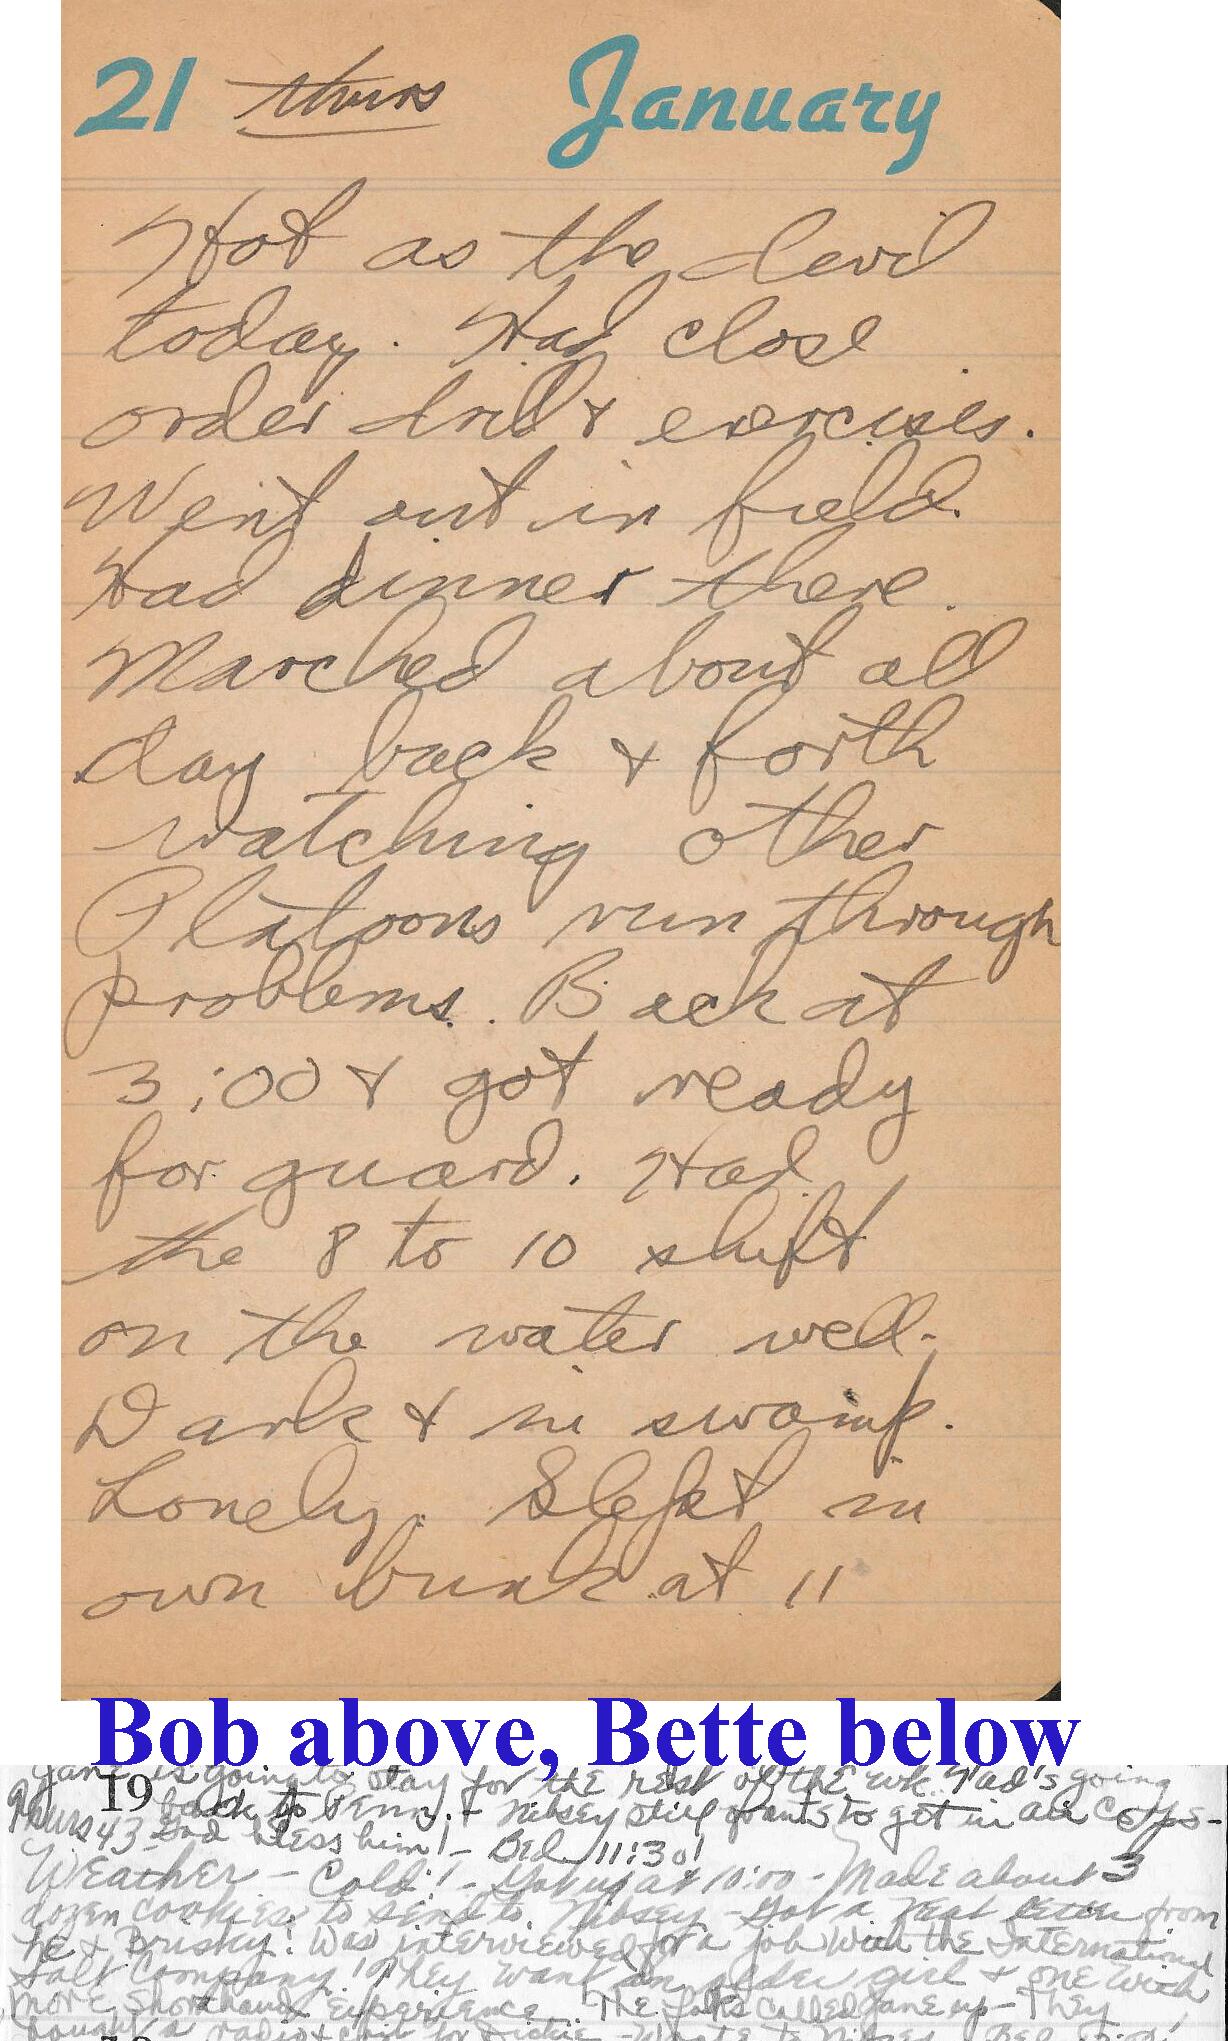 21 Thurs January
Hot as the devil
today. Had close
order drill & exercises.
Went out in field.
Had dinner there.
Marched about all
day back & forth
watching other
Platoons run through
problems. Back at
3:00 & got ready
for guard. Had
the 8 to 10 shift
on the water well.
Dark & in swamp.
Lonely. Slept in
own bunk at 11
Bob above, Bette below
Jane is going to stay for the rest of the wk. Tad's going
19 back to Penn. + Nibsey still wants to get in air Corps-
Thurs 43 God bless him! - Bed 11:30!
Weather - Cold! - Got up at 10:00 - Made about 3
dozen cookies to send to Nibsey - Got a letter from
he & Brisky! Was interviewed for a job with the International
Salt Company! They want an older girl & one with
more Shorthand experience. The folks called Jane up - They
bought a radio + for Dickie - Wrote to